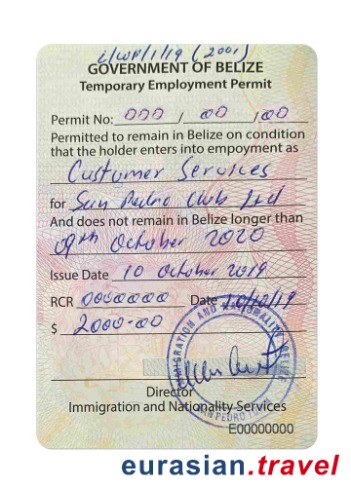 L/WP/1/19 (2001)
GOVERNMENT OF BELIZE
Temporary Employment Permit
Permit No: 000 / 00 / 00
Permitted to remain in Belize on condition
that the holder enters into empoyment as
Customer Services
for San Pedro Club Ltd
And does not remain in Belize longer than
09th October 2020
Issue Date 10 October 2019
RCR 0000000 Date 10/10/19
$ 2000-00
IMMIGRATION AND NATIONALITY BELIZE
SAN PEDRO
Director
Immigration and Nationality Services
E00000000
eurasian.travel